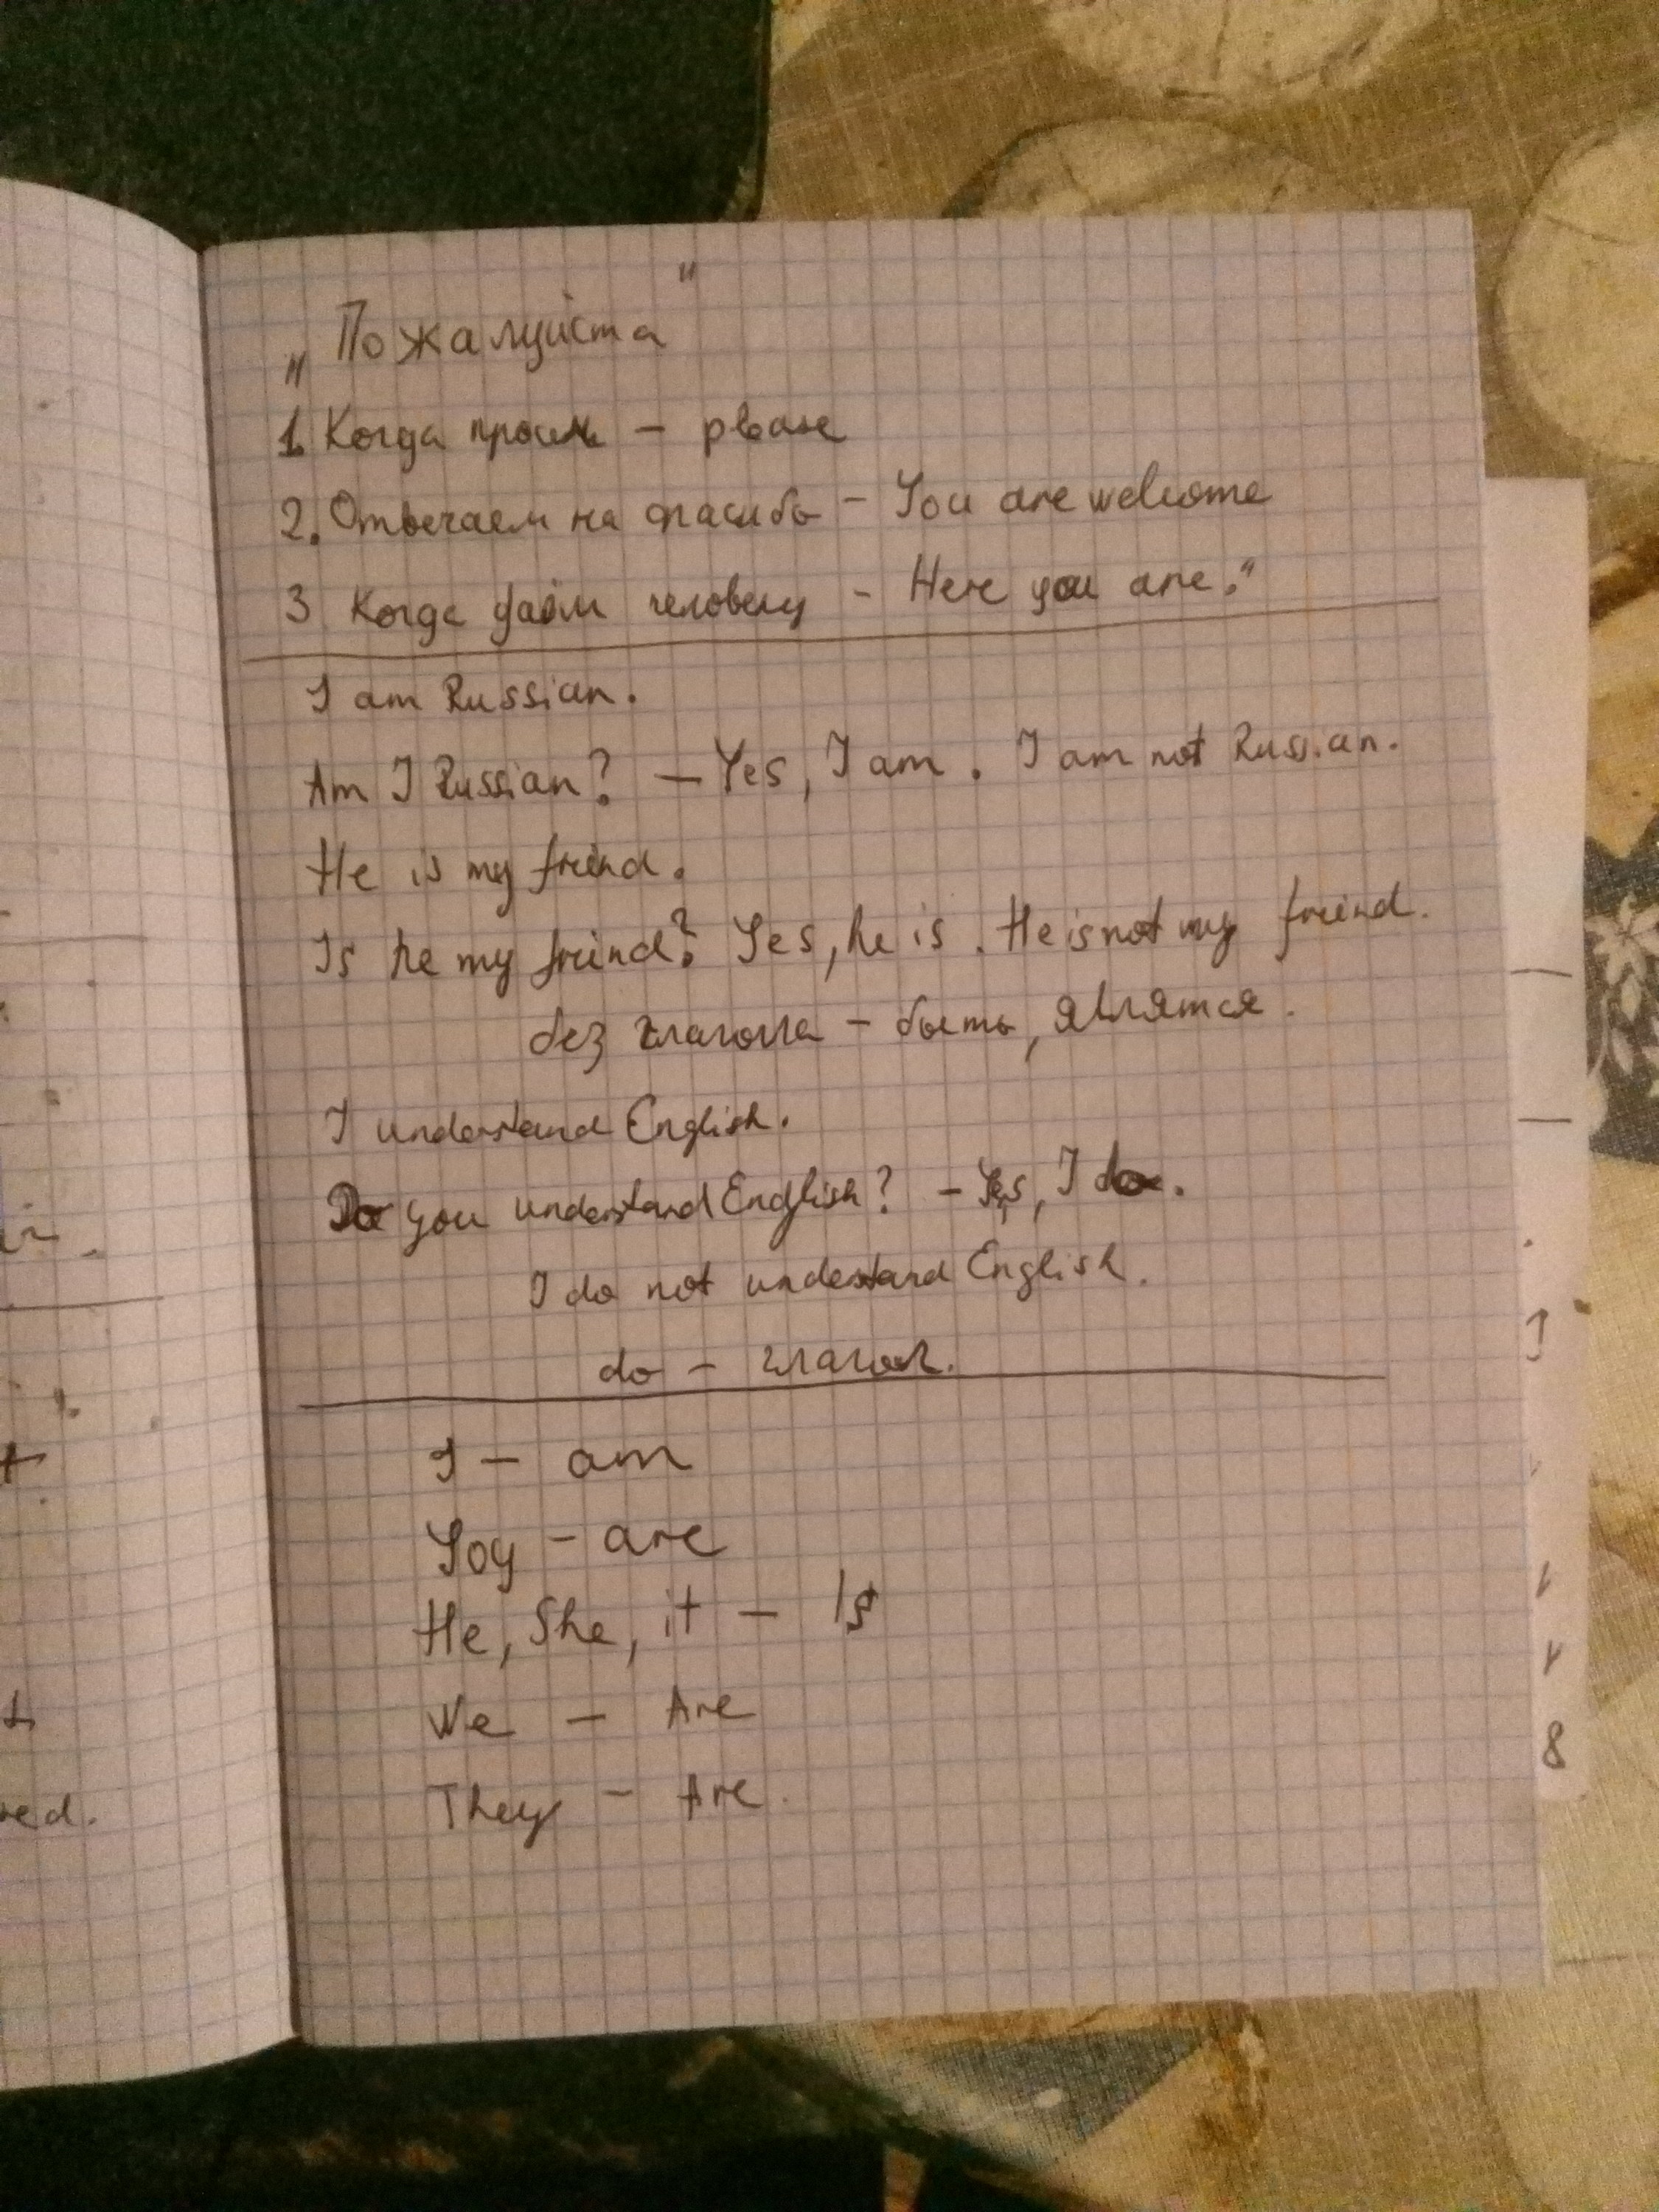 „Пожалуйста"
1. Когда просим – please
2. Отвечаем на спасибо – You are welcome
3 Когда даём человеку – Here you are."
I am Russian.
Am I Russian? – Yes, I am. I am not Russian.
He is my freind.
Is he my freind? Yes, he is. He is not my freind.
без глагола – быть, являтся.
I understand English.
Do you understand English? – Yes, I do.
I do not undestand English.
do – глагол.
I – am
Yoy – are
He, She, it – Is
We – Are
They – Are.
red.
8